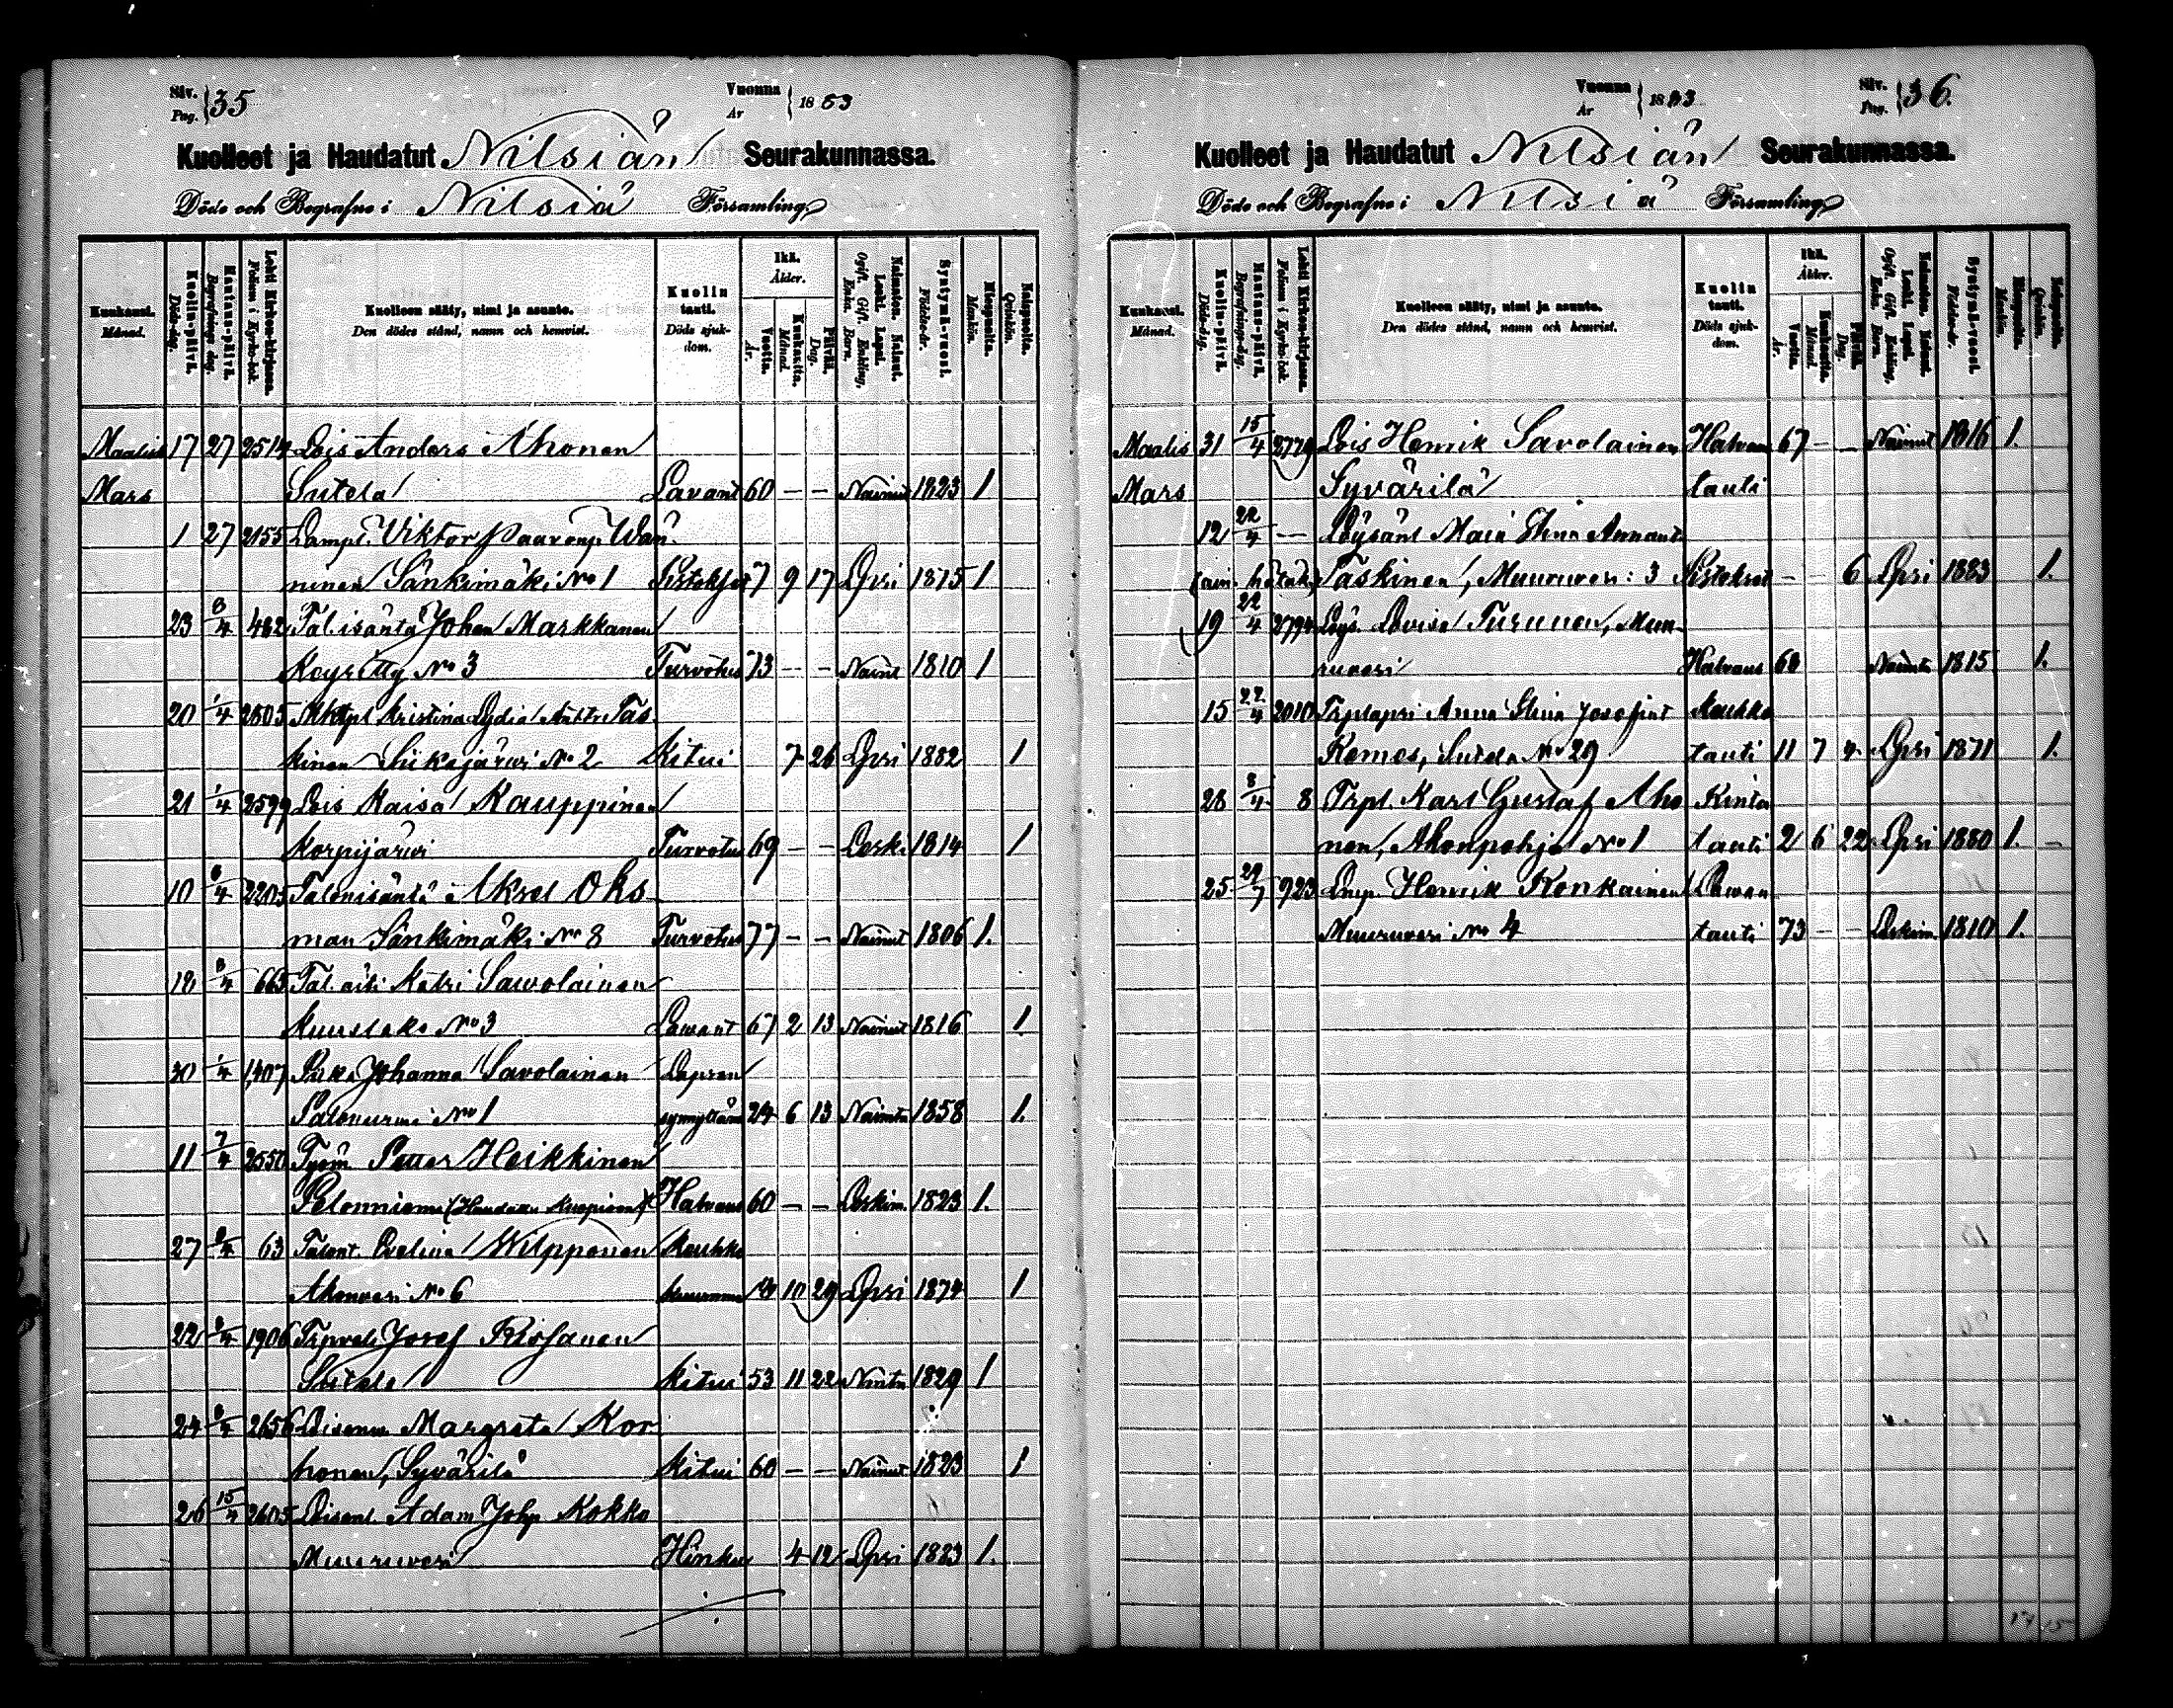 Siv. Pag. 35
Vuonna År 1883
Kuolleet ja Haudatut Nilsiän Seurakunnassa.
Döde och Begrafne i Nilsiä Församling
Kuukausi. Månad.
Kuolin-päivä. Döds-dag.
Hautaus-päivä. Begrafnings-dag.
Lehti Kirkon-kirjassa. Folium i Kyrko-bok.
Kuolleen sääty, nimi ja asunto. Den dödes stånd, namn och hemvist.
Kuolin tauti. Döds sjuk-dom.
Ikä. Ålder.
Vuotta. År.
Kuukautta. Månad.
Päivää. Dag.
Naimaton. Nainut. Leski. Lapsi. Ogift. Gift. Enkling, Enka. Barn.
Syntymä-vuosi. Födelse-år.
Miespuolta. Mankön.
Naispuolta. Qvinkön.
Maalis 17 27 2514 Lois Anders Ahonen
Mars Sutela Lavant 60 - - Nainut 1823 1
1 27 2155 Lampt. Viktor Paavonp. Wän
ninen Sänkimäki No 1 7 9 17 Lpsi 1875 1
23 8/4 482 Tal. isäntä Johan Markkanen
Keyritty No 3 Turvotus 73 - - Nainut 1810 1
20 1/4 2605 Kristina Lydia Antti Tas
kinen Siikajärvi No 2 Kitui 7 26 Lpsi 1882 1
21 1/4 2599 Lois Kaisa Kauppinen
Korpijärvi Turvotus 69 - - Leski 1814 1
10 8/4 2205 Talonisäntä Aksel Oks
man Sänkimäki No 8 Turvotus 77 - - Nainut 1806 1.
18 8/4 665 Tal. äiti Katri Sawolainen
Kuuslaks No 3 Lawant 67 2 13 Nainut 1816 1.
30 1/4 1,407 Piika Johanna Savolainen Lapsen
Palonurmi No 1 synnyttäm 24 6 13 Nainut 1858 1.
11 7/4 2550 Työm. Petter Heikkinen
Pelonniemi (Haudattu Kuopioon) Halvaus 60 - - Leskim. 1823 1.
27 8/4 63 Talont. Evelina Wilpponen Keuhko
Ahonvesi No 6 kuumme 10 29 Lpsi 1874 1
22 8/4 1906 Josef Rissanen
Sutela Kitui 53 11 22 1829 1
24 8/4 2656 Margreta Kor
honen, Syvärilä Kitui 60 - - Nainut 1823 1
26 15/4 2605 Adam Johp Kokko
Muuruvesi Hinku 4 12 Lpsi 1883 1.
Vuonna År 1883
Siv. Pag. 36.
Kuolleet ja Haudatut Nilsiän Seurakunnassa.
Döde och Begrafne i Nilsiä Församling
Kuukausi. Månad.
Kuolin-päivä. Döds-dag.
Hautaus-päivä. Begrafnings-dag.
Lehti Kirkon-kirjassa. Folium i Kyrko-bok.
Kuolleen sääty, nimi ja asunto. Den dödes stånd, namn och hemvist.
Kuolin tauti. Döds sjuk-dom.
Ikä. Ålder.
Vuotta. År.
Kuukautta. Månad.
Päivää. Dag.
Naimaton. Nainut. Leski. Lapsi. Ogift. Gift. Enkling, Enka. Barn.
Syntymä-vuosi. Födelse-år.
Miespuolta. Mankön.
Naispuolta. Qvinkön.
Maalis 31 15/4 2779 Lois Henrik Savolainen Halvaus 67 - - Nainut 1816 1.
Mars Syvärilä tauti
12 22/4 - Maia Stina Annant
Taskinen, Muuruvesi: 3 - - 6 Lpsi 1883 1.
19 22/4 2794 Lovisa Turunen, Muu-
ruvesi Halvaus 68 1815 1.
15 22/4 2010 Anna Stina Josefint Keuhko
Komos, Sutela No 29 tauti 11 7 4 Lpsi 1871 1.
28 8/4 8 Trpl. Karl Gustaf Aho Rinta
nen, Akonpohja No 1 tauti 2 6 22 Lpsi 1880 1. -
25 29/7 923 Henrik Konkainen Lawan
Muuruvesi No 4 tauti 73 - - Leskim. 1810 1.